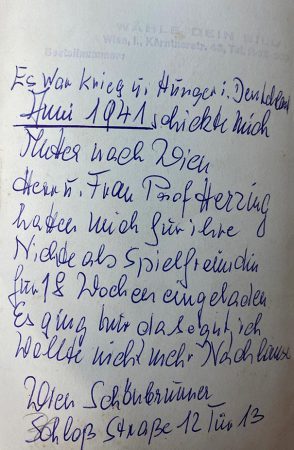 WÄHLE DEIN BILD
Wien, I., Kärntnerstr. 43, Tel.
Bestellnummer
Es war krieg u. Hunger i. Deutschland
Juni 1941 schickte mich
Muter nach Wien
Herr u. Frau Prof Herzing
haten mich für ihre
Nichte als Spielfreundin
für 18 Wochen eingeladen
Es ging mir da so gut ich
wollte nicht mehr Nachhause
Wien Schönbrunner
Schloß Straße 12 Tür 13